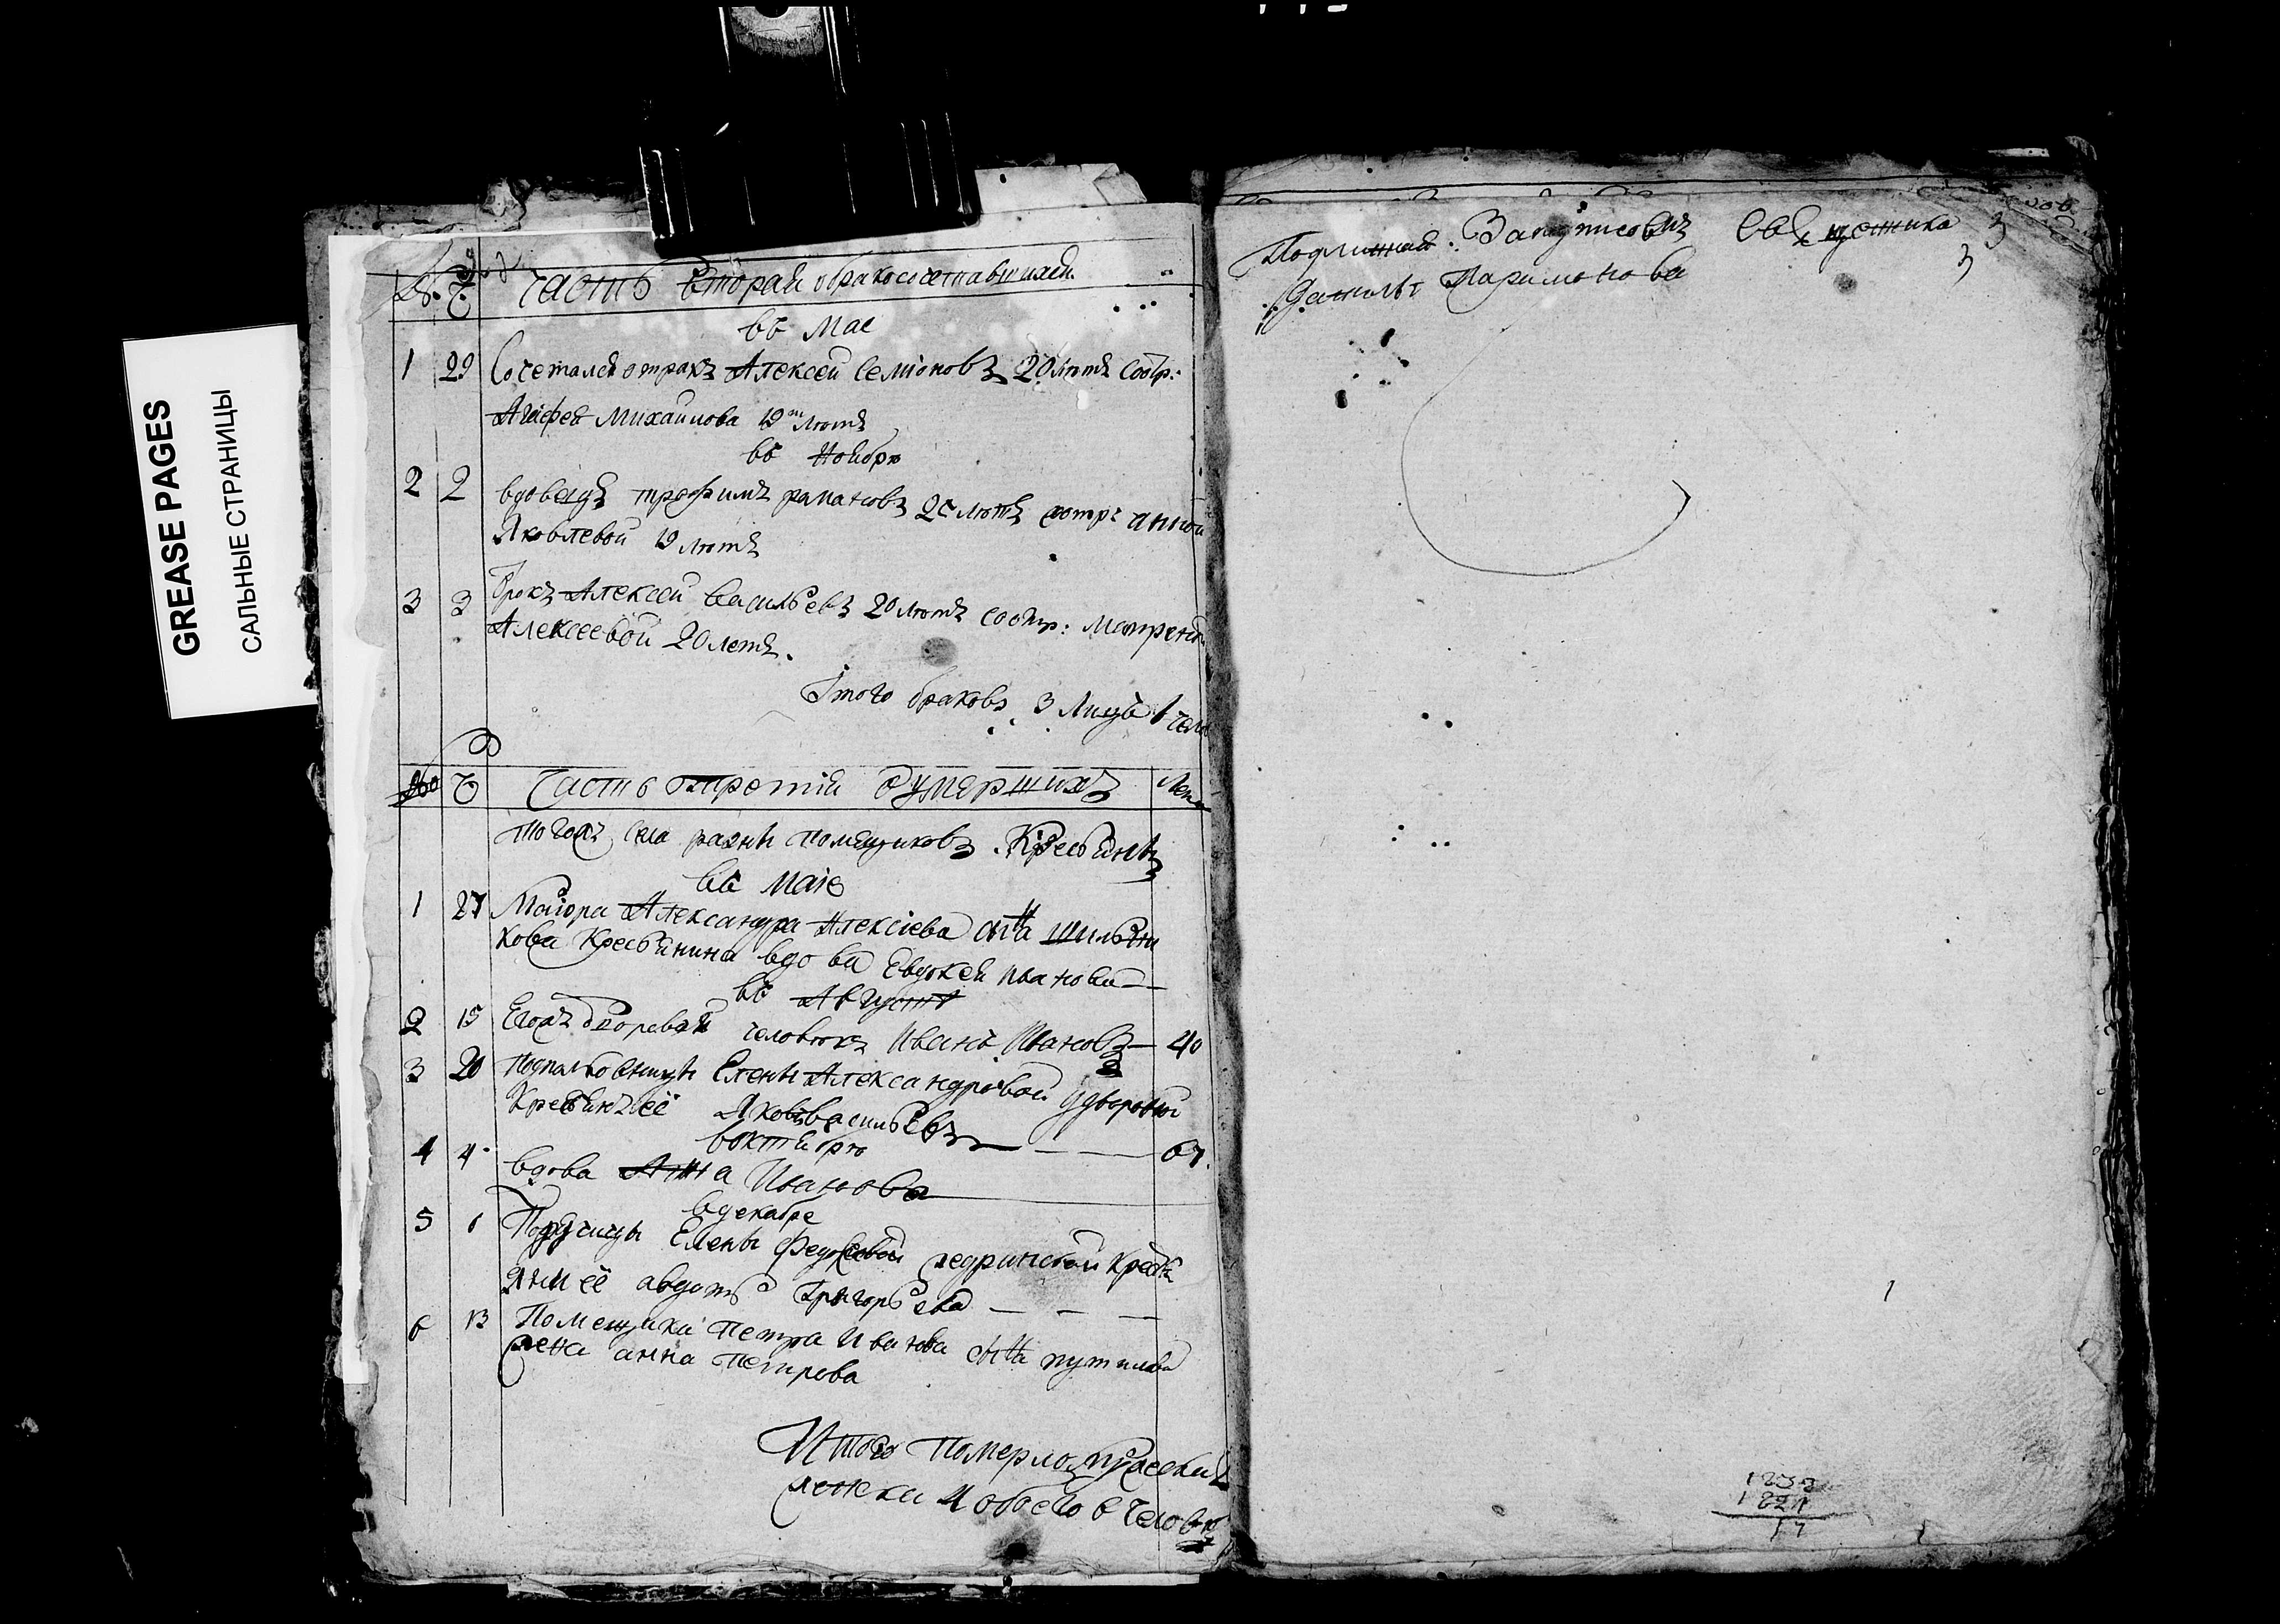 GREASE PAGES
САЛЬНЫЕ СТРАНИЦЫ
№ Ч Часть вторая обракосочетавшихся
въ Мае
1 29 Сочетался отрокъ Алексей Семіоновъ 20 лѣтъ сотр:
Агафея Михаилова 19 лѣтъ
въ Ноябрѣ
2 2 вдовецъ трофимъ лѣтъ сотр: анной
Яковлевой 19 лѣтъ
3 3 Отрокъ Алексей Васильевъ 20 лѣтъ сотр: матреной
Алексеевой 20 летъ.
Итого браковъ 3 Лицъ 6 чело
№ Ч Часть третія оумершихъ Лета
тогожъ села разны помещиковъ Крестьянъ
въ Маіе
1 27 Маіора Александра Алексіева сна
кова Крестьянина вдова Евдокея иванова
въ Августѣ
2 15 Егожъ дворовай человѣкъ Иванъ Ивановъ 40
3 20 подпалковницы Елены Александровой
Крестьянъ её Яковъ васильевъ 67.
воктябрѣ
4 4 вдова Анна Иванова
вдекабре
5 6 Елены Федоровой
янки её авдотья Григорьева
6 13 Помещика Петра Иванова сна путилова
жена анна петрова
Итого померло мужеска 2
женска 4 обоего 6 человѣ
Подлинная Записовъ Священника
Данилы Парамонова
3
3